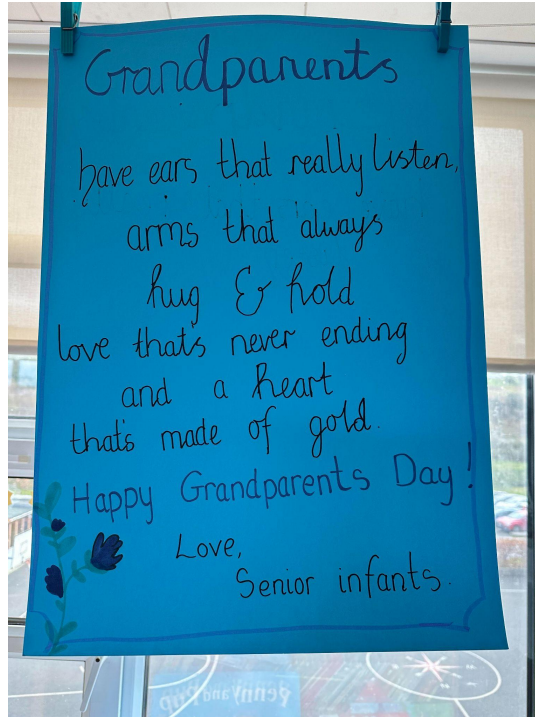 Grandparents
have ears that really listen,
arms that always
hug & hold
love that's never ending
and a heart
that's made of gold.
Happy Grandparents Day!
Love,
Senior infants.
Penny and Pup